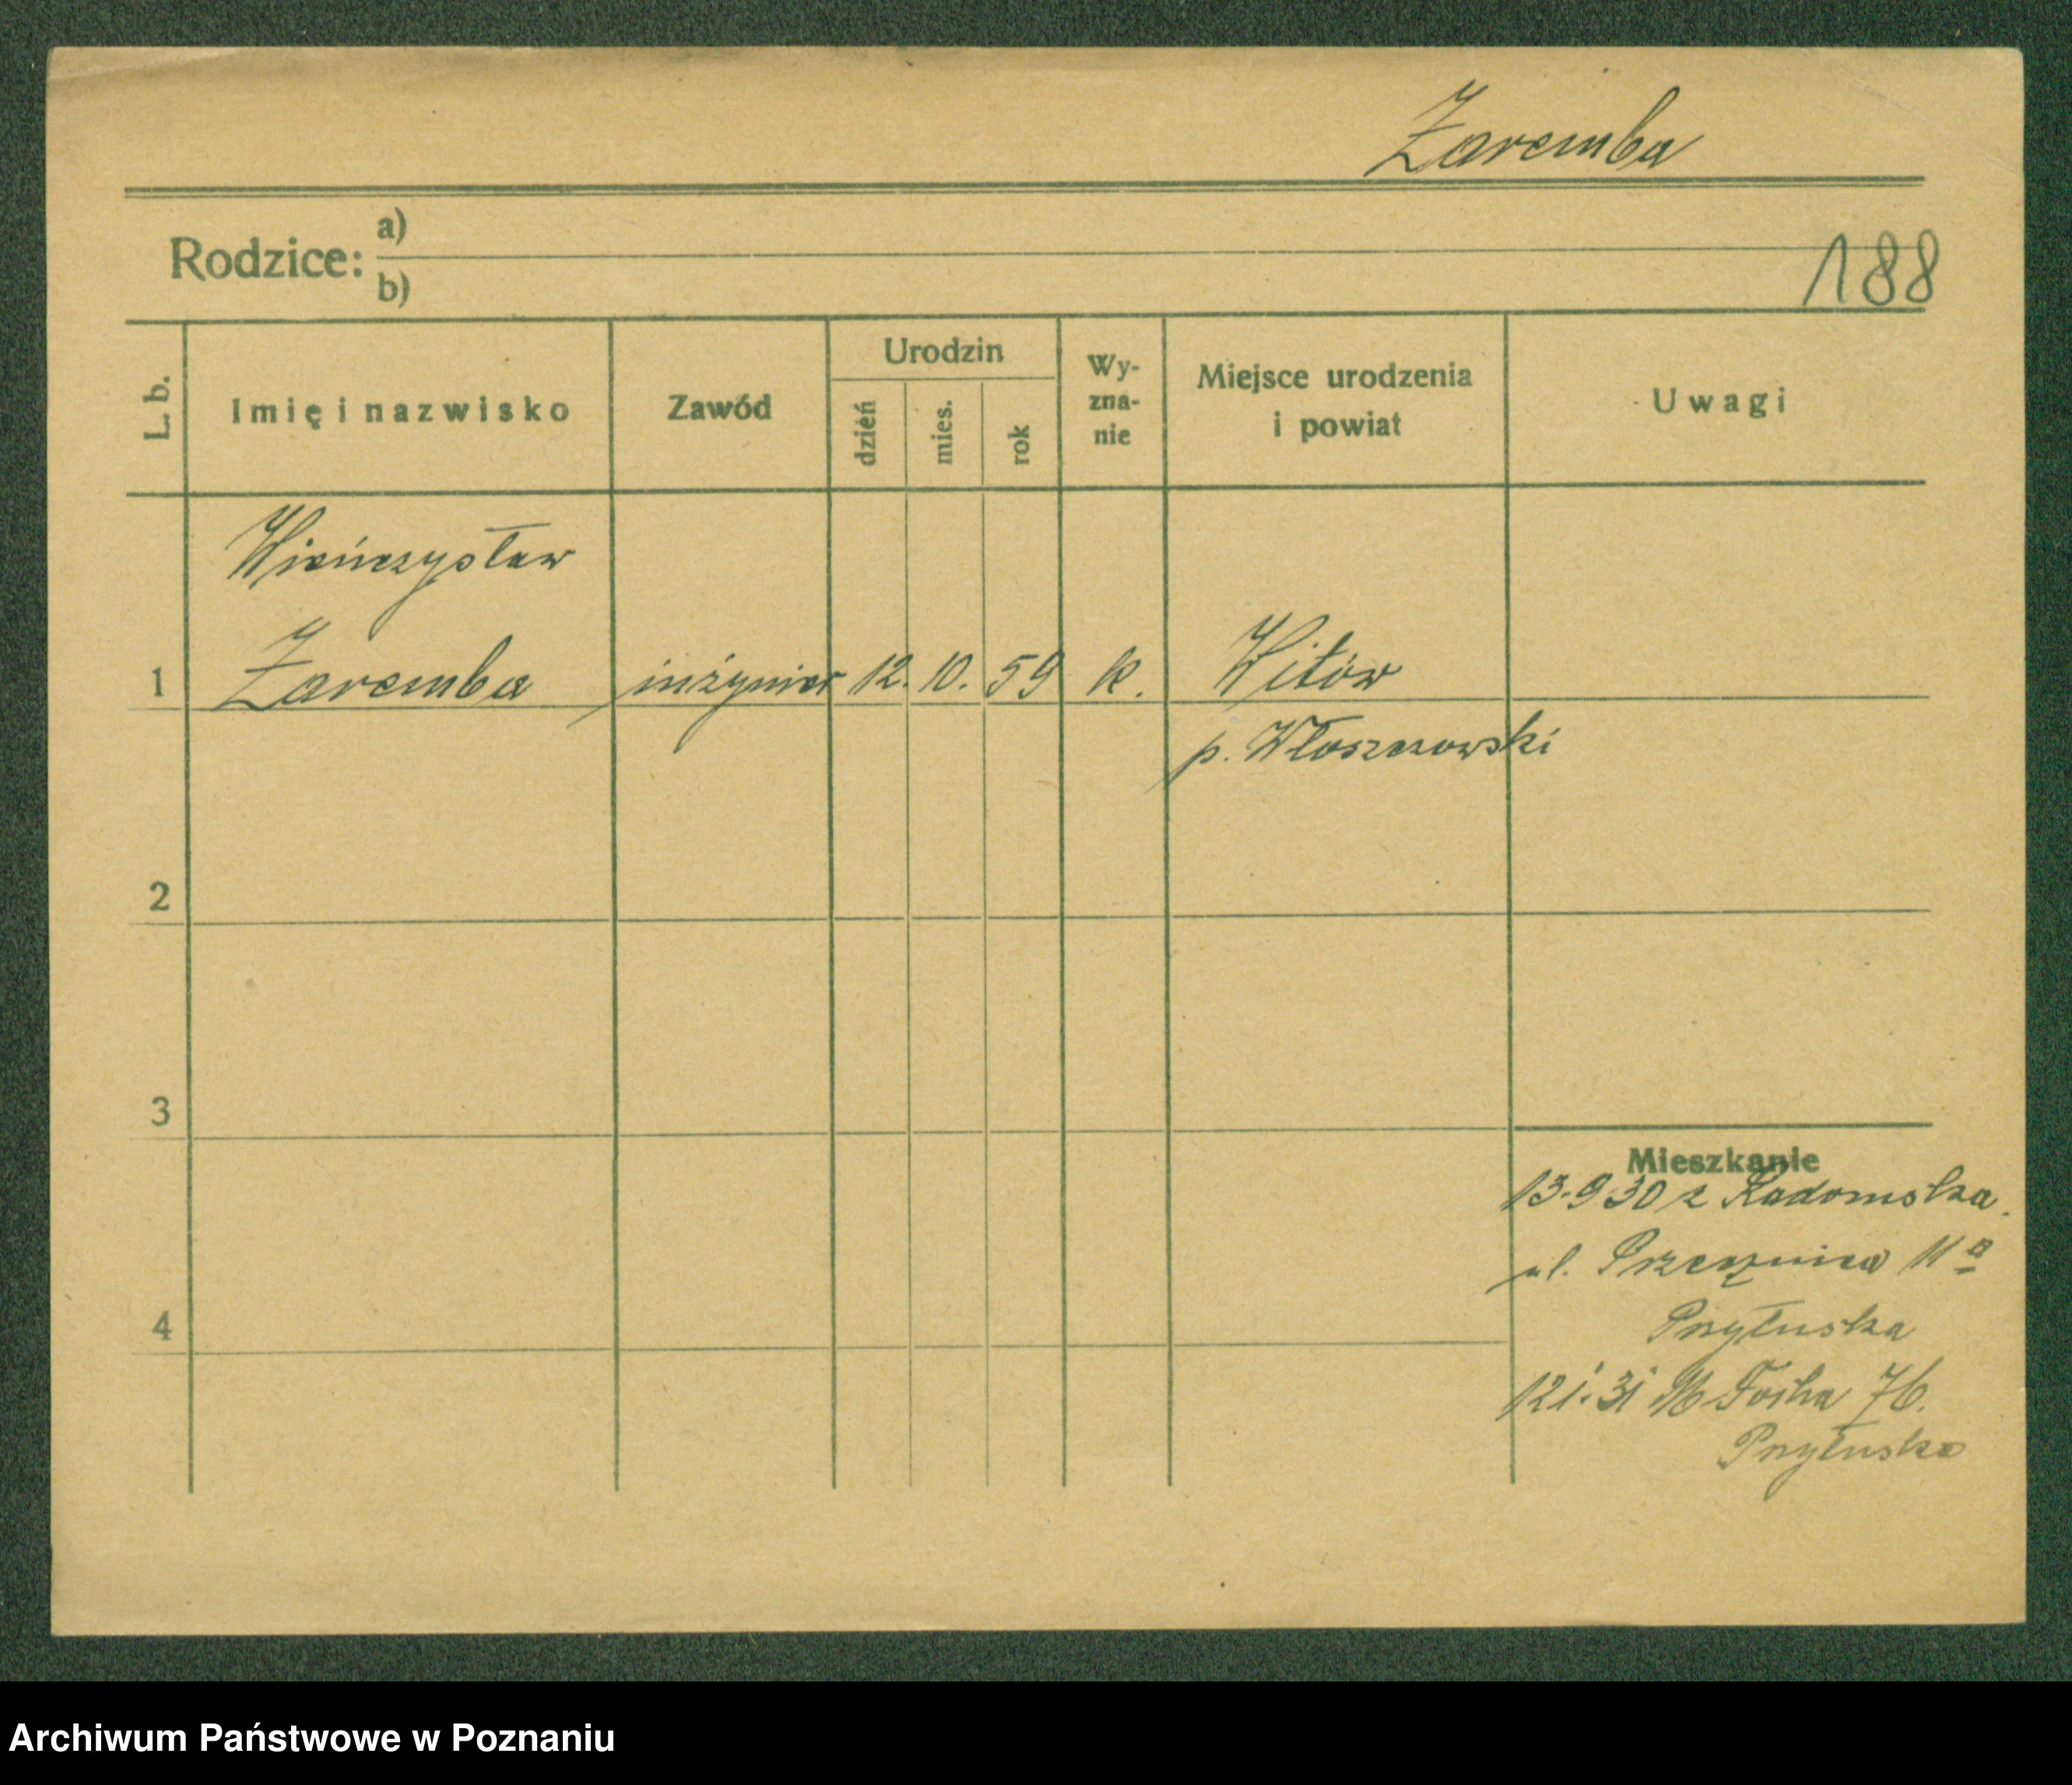 Zaremba
Rodzice: a)
b)
188
L. b. Imię i nazwisko Zawód Urodzin dzień mies. rok Wy-zna-nie Miejsce urodzenia i powiat Uwagi
Wieńczysław
1 Zaremba inżynier 12. 10. 59 k. Witów
p. Włoszczowski
2
3
Mieszkanie
13.9 30 z Radomska.
ul. Przecznica 11a
4 Przyłuska
Focha 76.
Przyłuska
Archiwum Państwowe w Poznaniu